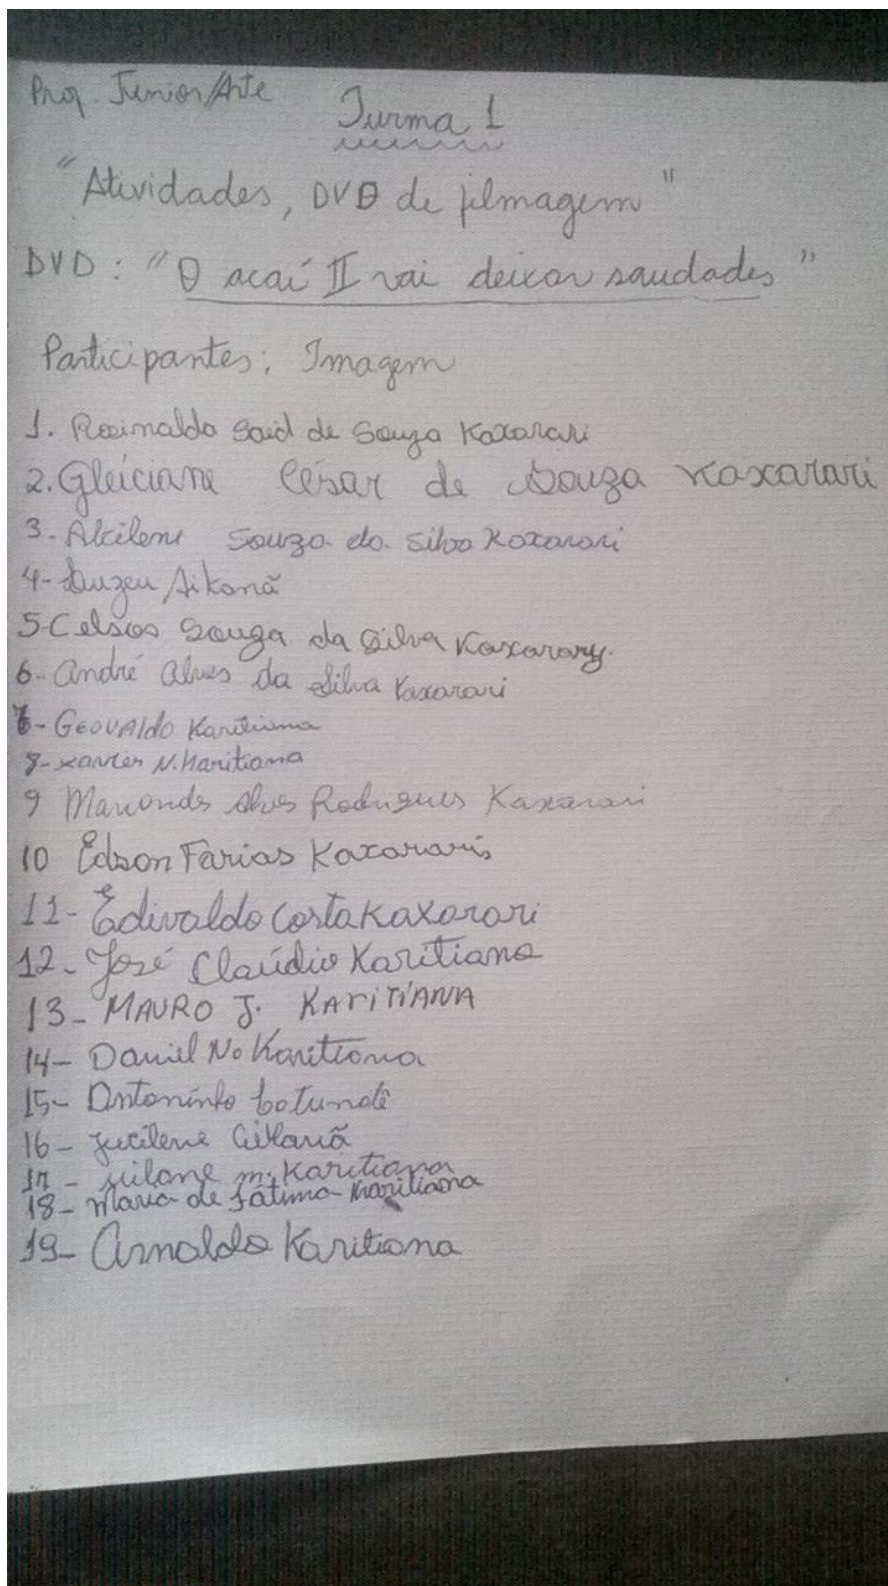 Prof. Junior/Arte
Turma 1
"Atividades, DVD de filmagem"
DVD: "O açaí II vai deixar saudades"
Participantes: Imagem
1. Said de Souza Kaxarari
2. Gleiciane César de Souza Kaxarari
3- Alcilene Souza da Silva Kaxarari
4- Luzeu Aikanã
5- Celsos Souza da Silva Kaxarary.
6- André Alves da Silva Kaxarari
7- GEOVAldo Karitiana
8- xavier N. Karitiana
9 Alves Rodrigues Kaxarari
10 Edson Farias Kaxararis
11- Edivaldo Costa Kaxarari
12- José Claúdio Karitiana
13- MAURO J. KARITIANA
14- Daniel No Karitiana
15-
16- Jucilene Aikanã
17 - m. Karitiana
18- Maria de Fátima Karitiana
19- Arnaldo Karitiana